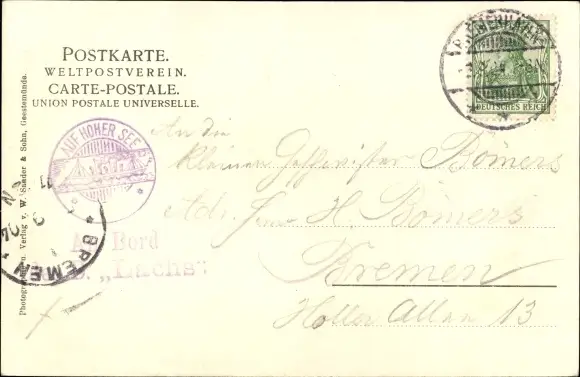 POSTKARTE.
WELTPOSTVEREIN.
CARTE-POSTALE.
UNION POSTALE UNIVERSELLE.
BREMERHAVEN
DEUTSCHES REICH
AUF HOHER SEE
An die
kleinen Bömers
Adr. Herrn H. Bömers
Bremen
Holler Allee 13
An Bord
D. „Lachs"
BREMEN
Verlag v. W. Sander & Sohn, Geestemünde.